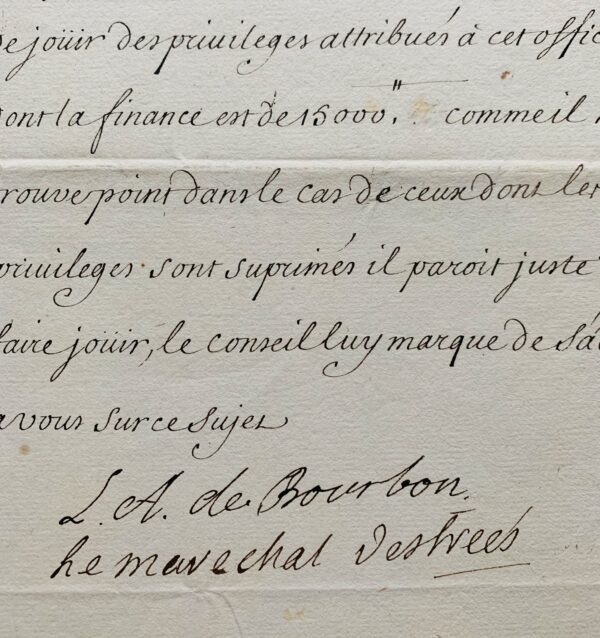 de joüir des privileges attribués à cet offic
dont la finance est de 15000." comme il
trouve point dans le cas de ceux dont les
privileges sont suprimés il paroit juste
faire joüir, le conseil luy marque de s'a
a vous sur ce sujet
L. A. de Bourbon.
Le marechal Destrées